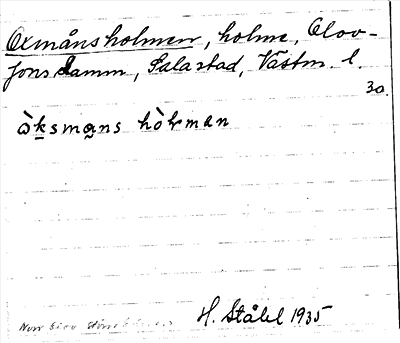 Oxmånsholmen, holme, Olov-
Jons damm, Sala stad, Västm. l.
30.
òksmans hòlman
H. Ståhl 1935